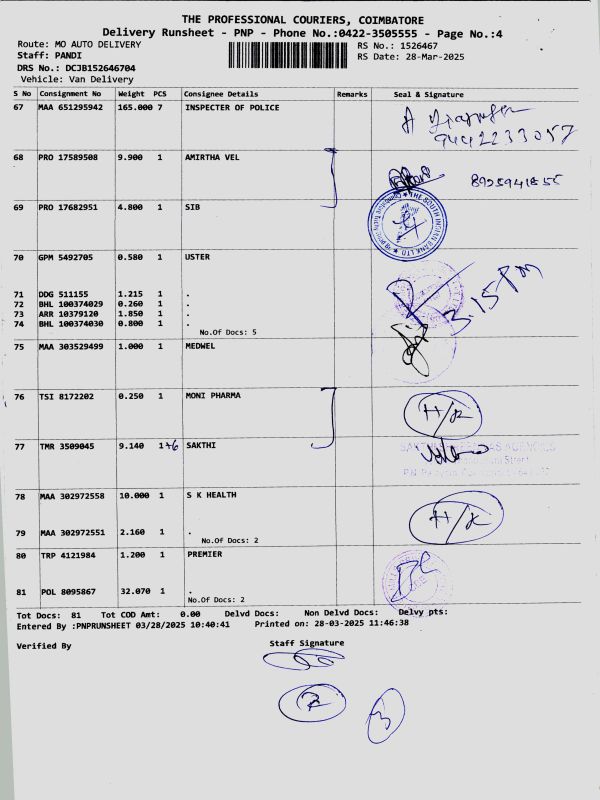 THE PROFESSIONAL COURIERS, COIMBATORE
Delivery Runsheet - PNP - Phone No.:0422-3505555 - Page No.:4
Route: MO AUTO DELIVERY RS No.: 1526467
Staff: PANDI RS Date: 28-Mar-2025
DRS No.: DCJB152646704
Vehicle: Van Delivery
S No Consignment No Weight PCS Consignee Details Remarks Seal & Signature
67 MAA 651295942 165.000 7 INSPECTER OF POLICE
9442233057
68 PRO 17589508 9.900 1 AMIRTHA VEL
8925941855
69 PRO 17682951 4.800 1 SIB
THE SOUTH INDIAN BANK LTD
70 GPM 5492705 0.580 1 USTER
3.15 PM
71 DDG 511155 1.215 1 .
72 BHL 100374029 0.260 1 .
73 ARR 10379120 1.850 1 .
74 BHL 100374030 0.800 1 .
No.Of Docs: 5
75 MAA 303529499 1.000 1 MEDWEL
76 TSI 8172202 0.250 1 MONI PHARMA
H/R
77 TMR 3509045 9.140 1+6 SAKTHI
78 MAA 302972558 10.000 1 S K HEALTH
H/R
79 MAA 302972551 2.160 1 .
No.Of Docs: 2
80 TRP 4121984 1.200 1 PREMIER
81 POL 8095867 32.070 1 .
No.Of Docs: 2
Tot Docs: 81 Tot COD Amt: 0.00 Delvd Docs: Non Delvd Docs: Delvy pts:
Entered By :PNPRUNSHEET 03/28/2025 10:40:41 Printed on: 28-03-2025 11:46:38
Verified By Staff Signature